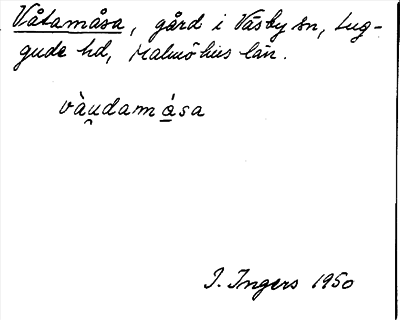 Våtamåsa, gård i Väsby sn, Lug-
gude hd, Malmöhus län.
vàu̯damá̱sa
I. Ingers 1950